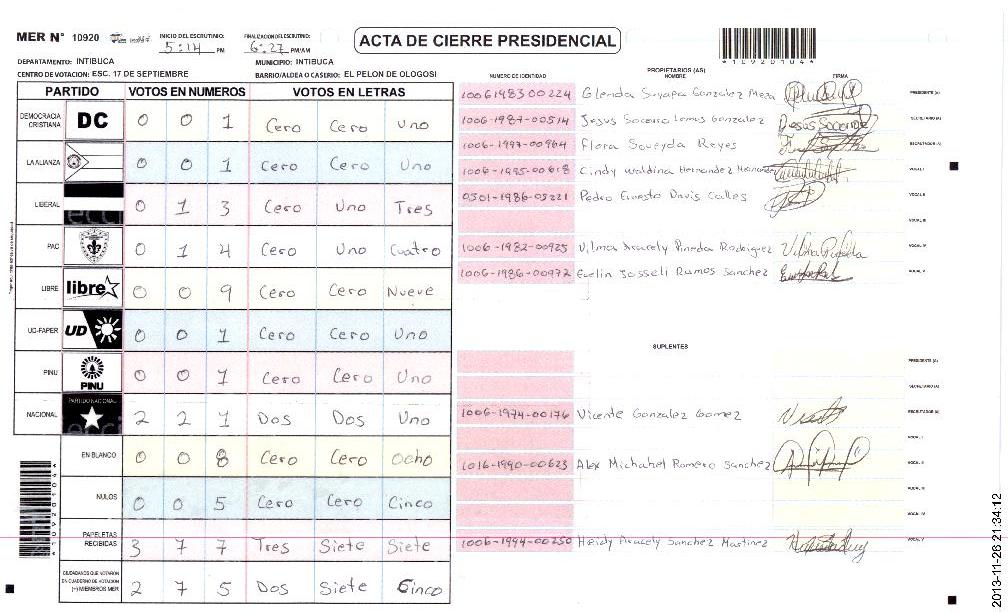 MER N° 10920
INICIO DEL ESCRUTINIO: 5:14 PM
FINALIZACION ESCRUTINIO: 6:27 PM/AM
ACTA DE CIERRE PRESIDENCIAL
DEPARTAMENTO: INTIBUCA
MUNICIPIO: INTIBUCA
CENTRO DE VOTACION: ESC. 17 DE SEPTIEMBRE
BARRIO/ALDEA O CASERIO: EL PELON DE OLOGOSI
PARTIDO VOTOS EN NUMEROS VOTOS EN LETRAS
DEMOCRACIA CRISTIANA DC 0 0 1 Cero Cero Uno
LA ALIANZA 0 0 1 Cero Cero Uno
LIBERAL 0 1 3 Cero Uno Tres
PAC 0 1 4 Cero Uno Cuatro
LIBRE libre 0 0 9 Cero Cero Nueve
UD-FAPER UD 0 0 1 Cero Cero Uno
PINU PINU 0 0 1 Cero Cero Uno
NACIONAL PARTIDO NACIONAL 2 2 1 Dos Dos Uno
EN BLANCO 0 0 8 Cero Cero Ocho
NULOS 0 0 5 Cero Cero Cinco
PAPELETAS RECIBIDAS 3 7 7 Tres Siete Siete
CIUDADANOS QUE VOTARON EN CUADERNO DE VOTACION (+) MIEMBROS MER 2 7 5 Dos Siete Cinco
PROPIETARIOS (AS)
NUMERO DE IDENTIDAD NOMBRE FIRMA
1006198300224 Glenda Suyapa Gonzalez Meza PRESIDENTE (A)
1006-1987-00514 Jesus Socorro Lemus Gonzalez SECRETARIO (A)
1006-1997-00964 Flora Soveyda Reyes ESCRUTADOR (A)
1006-1995-00618 Cindy Waldina Hernandez Hernandez VOCAL I
0501-1986-05221 Pedro Ernesto Davis Calles VOCAL II
VOCAL III
1006-1982-00925 Vilma Aracely Pineda Rodriguez VOCAL IV
1006-1986-00972 Evelin Josseli Ramos Sanchez VOCAL V
SUPLENTES
PRESIDENTE (A)
SECRETARIO (A)
1006-1974-00176 Vicente Gonzalez Gomez ESCRUTADOR (A)
VOCAL I
1016-1990-00623 Alex Michahel Romero Sanchez VOCAL II
VOCAL III
VOCAL IV
1006-1994-00250 Heidy Aracely Sanchez Martinez VOCAL V
*10920104*
*10920104*
2013-11-26 21:34:12